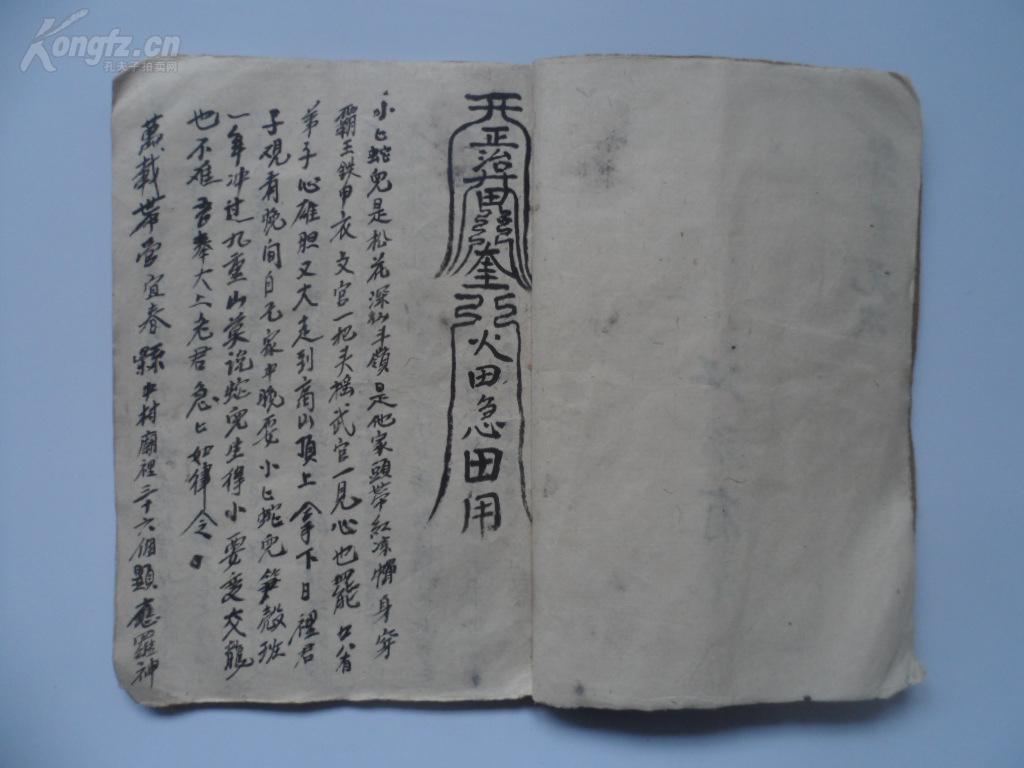 Kongfz.cn
孔夫子拍卖网
正治
奎
火田急田用
小匕蛇児是松花深山手嶺是他家頭帶紅凉帽身穿
霸王鉄甲衣文官一把头摇武官一見心也罷
弟子心雄胆又大走到高山頂上拿下日裡君
子硯有晚間自己家中晚耍小匕蛇児笋殼班
一年冲过九重山莫说蛇児生得小要变交龍
也不难吾奉大上老君急匕如律令
萬載帶管宜春縣中村廟裡三十六個顯應羅神